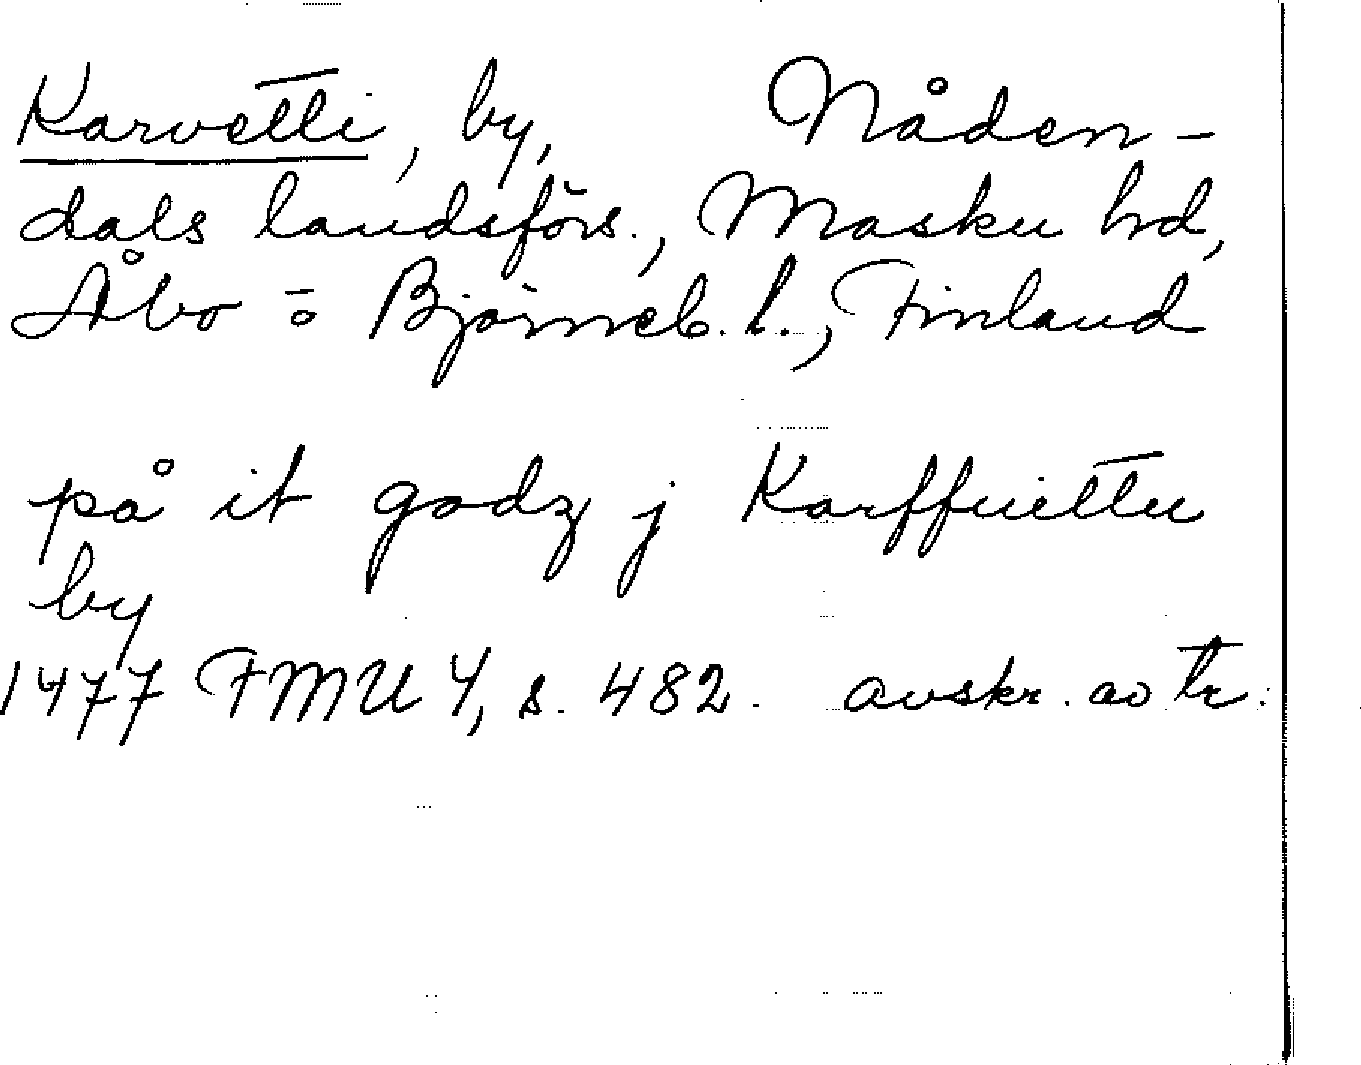 Karvetti, by, Nåden-
dals landsförs., Masku hd,
Åbo - o Björneb. l., Finland
på it godz j Karffuettu
by
1477 FMU 4, s. 482. avskr. av tr.